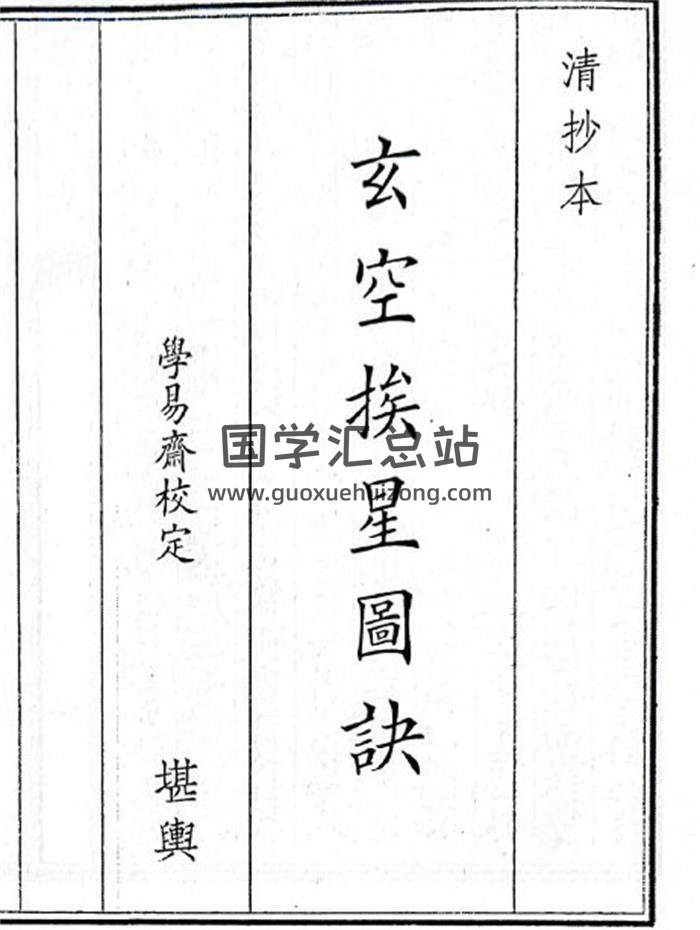 清抄本
玄空挨星圖訣
學易齋校定
堪輿
国学汇总站
www.guoxuehuizong.com